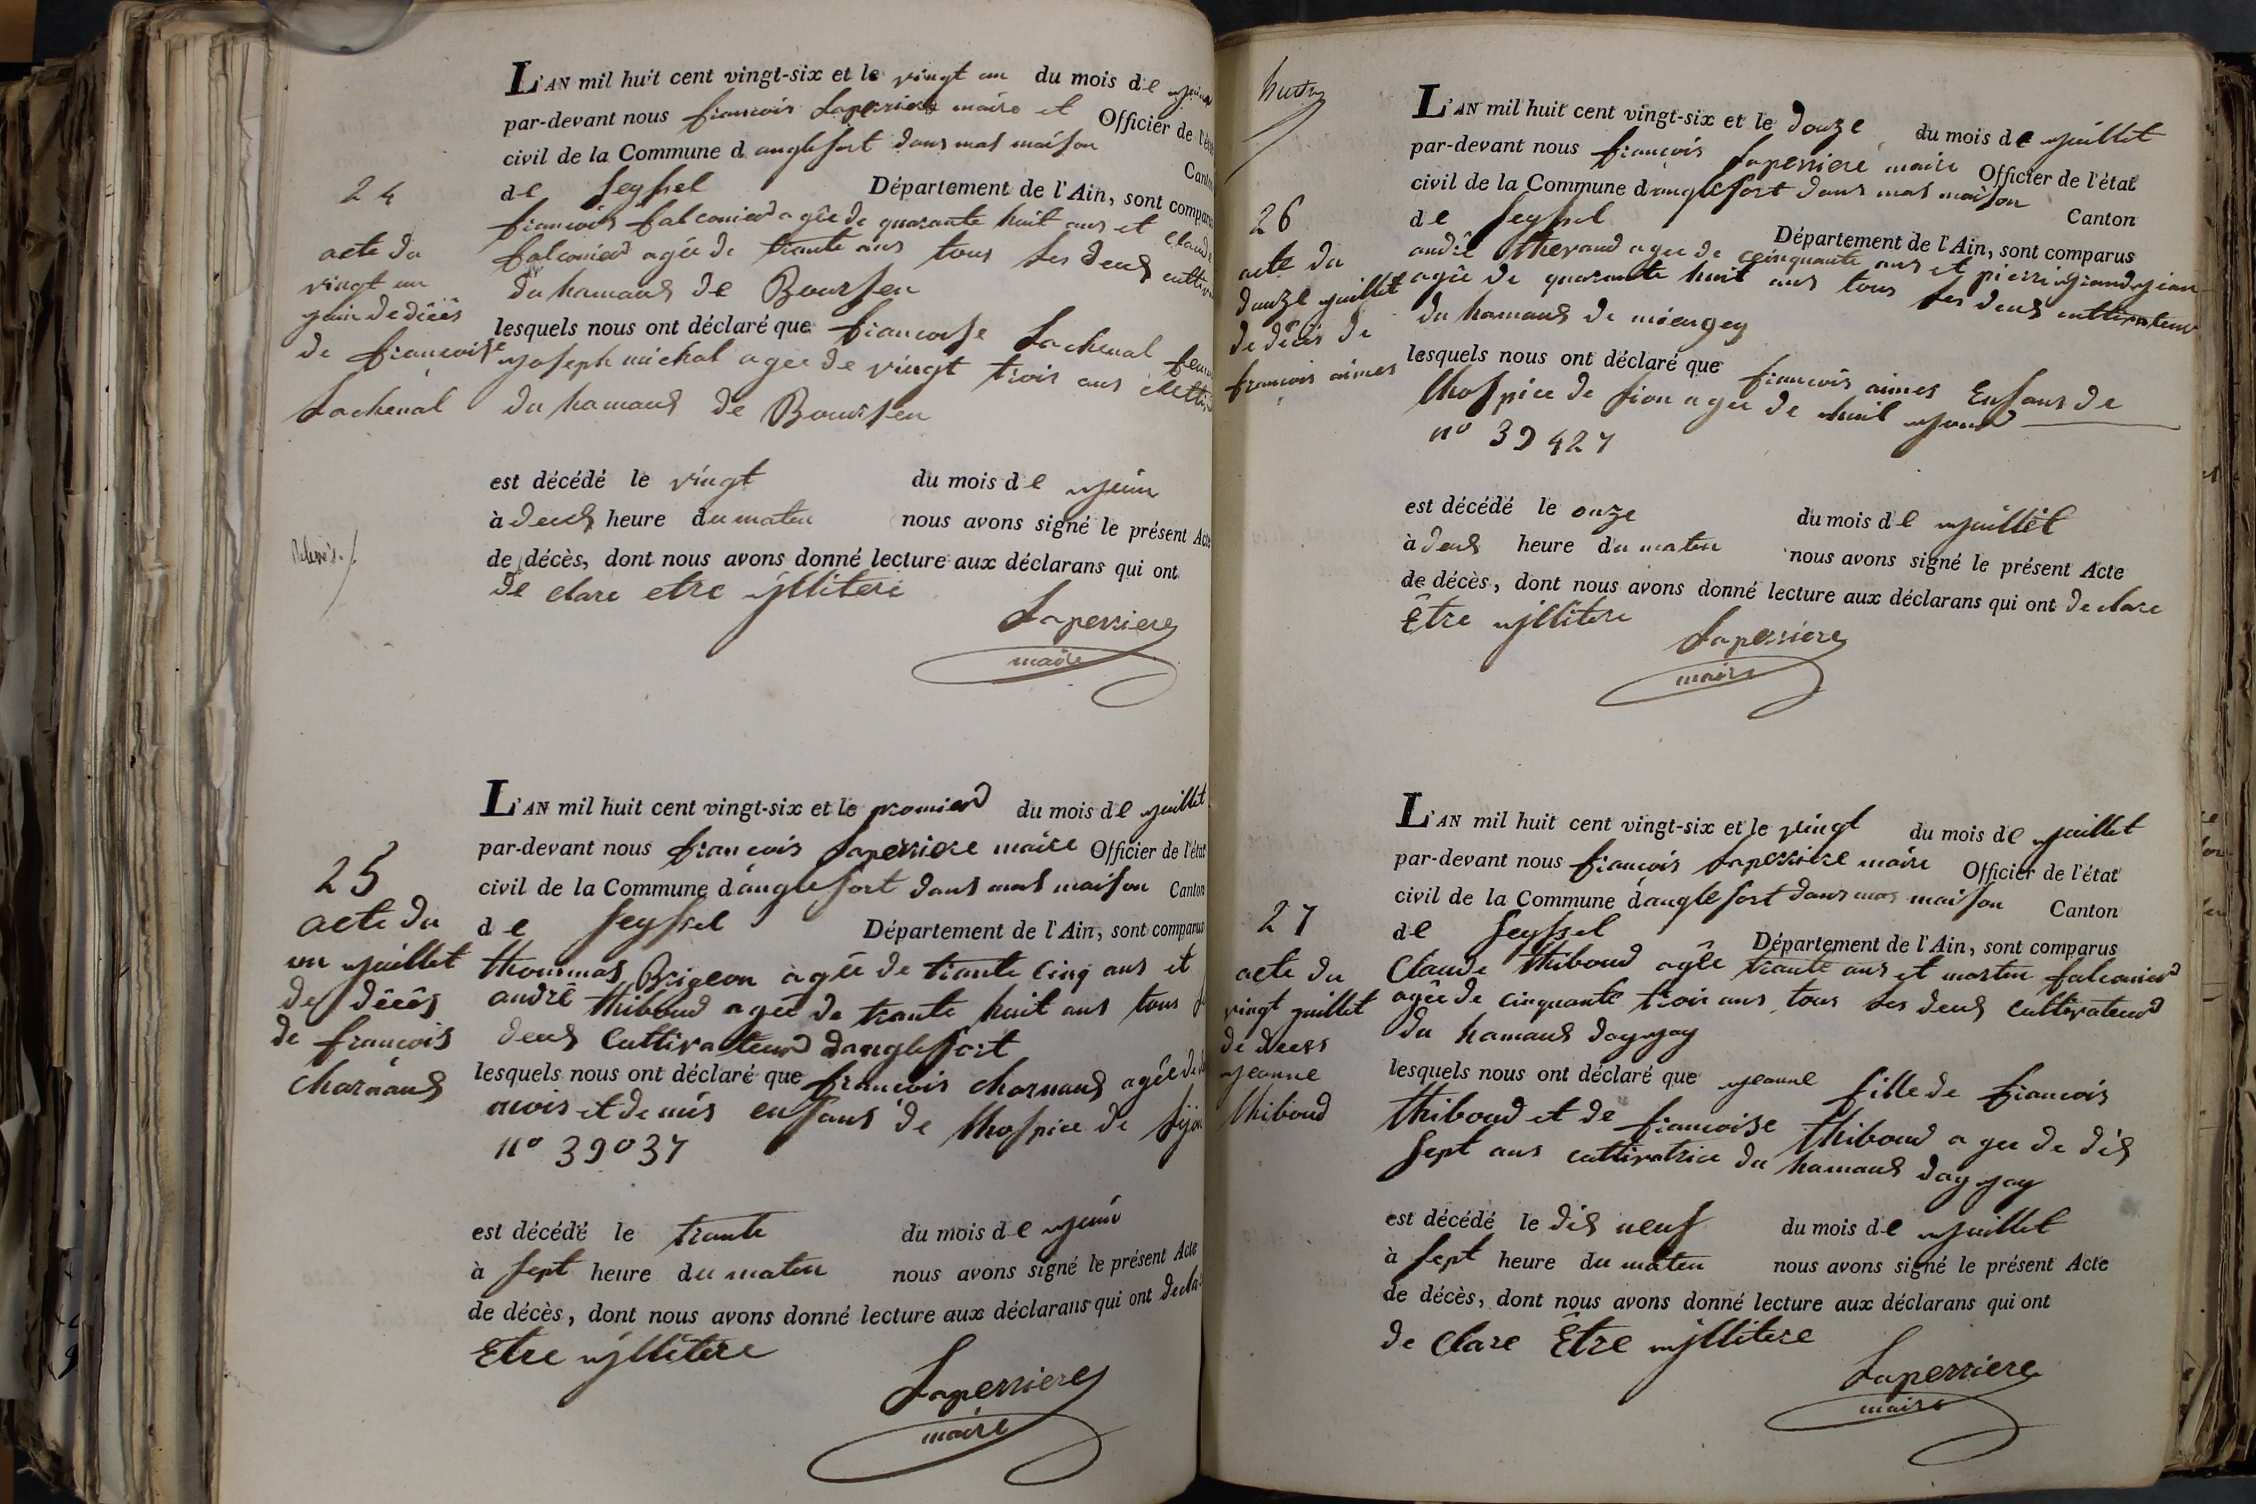 L'AN mil huit cent vingt-six et le vingt un du mois de
par-devant nous francois Laperriere maire et Officier de l'état
civil de la Commune d anglefort dans mas maison Canton
24
de Seyssel Département de l'Ain, sont comparus
francois falconier agée de quarante huit ans et Claude
acte du
falconier agée de trante ans tous les deus
vingt un
du hamaus de Boursen
juin de décés
lesquels nous ont déclaré que francoise Lachenal
de francoise
joseph michal agée de vingt trois ans
Lachenal
du hamaus de Boursen
est décédé le vingt du mois de juin
à deus heure du maten nous avons signé le présent Acte
de décès, dont nous avons donné lecture aux déclarans qui ont
de clare etre jllitere
Laperriere
maire
L'AN mil huit cent vingt-six et le promier du mois de juillet
par-devant nous francois Laperriere maire Officier de l'état
25
civil de la Commune d'anglefort dans mas maison Canton
acte du
de Seyssel Département de l'Ain, sont comparus
un juillet
thommas Brigeon agée de trante cinq ans et
de décés
andré thiboud agée de trante huit ans tous
de francois
deus Cultivateur danglefort
Charnaus
lesquels nous ont déclaré que francois charnaus agée de
mois et demis enfans de lhospice de
n° 39037
est décédé le trante du mois de juin
à sept heure du maten nous avons signé le présent Acte
de décès, dont nous avons donné lecture aux déclarans qui ont
Etre jllitere
Laperriere
maire
L'AN mil huit cent vingt-six et le douze du mois de juillet
par-devant nous françois Laperriere maire Officier de l'état
civil de la Commune danglefort dans mas maison Canton
26
de Seyssel Département de l'Ain, sont comparus
acte du
andré thevand agee de ceinquante ans et pierre grandjean
douze juillet
agée de quarante huit ans tous les deus cultivateur
de décés de
du hamaus de miengey
francois aimes
lesquels nous ont déclaré que francois aimes Enfans de
lhospice de agee de huit jour
n° 39427
est décédé le onze du mois de juillet
à deus heure du maten nous avons signé le présent Acte
de décès, dont nous avons donné lecture aux déclarans qui ont declare
Etre jllitere
Laperriere
maire
L'AN mil huit cent vingt-six et le vingt du mois de juillet
par-devant nous francois Laperriere maire Officier de l'état
civil de la Commune d'anglefort dans mas maison Canton
27
de Seyssel Département de l'Ain, sont comparus
acte du
Claude thiboud agée trante ans et martin falconier
vingt juillet
agée de cinquante trois ans tous les deus Cultivateur
de deces
du hamaus dayjoy
jeanne
lesquels nous ont déclaré que jeanne fille de francois
thiboud
thiboud et de francoise thiboud agee de dis
sept ans cultivatrice du hamaus dayjoy
est décédé le dis neuf du mois de juillet
à sept heure du maten nous avons signé le présent Acte
de décès, dont nous avons donné lecture aux déclarans qui ont
de clare Etre jllitere
Laperriere
maire